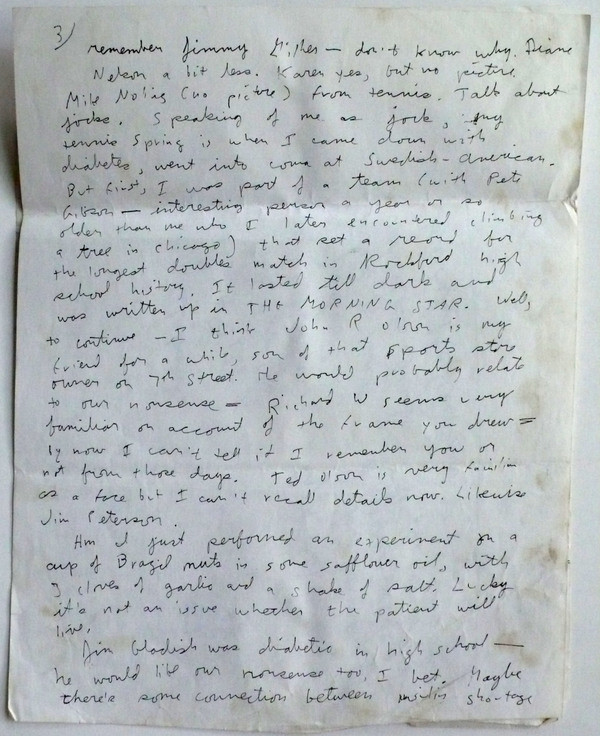 3)
remember Jimmy – don't know why. Diane
Nelson a bit less. Karen yes, but no picture.
Mike Noling (no picture) from tennis. Talk about
jocks. Speaking of me as jock, my
tennis Spring is when I came down with
diabetes, went into coma at Swedish-American.
But first, I was part of a team (with Pete
Gibson – interesting person a year or so
older than me who I later encountered climbing
a tree in Chicago) that set a record for
the longest doubles match in Rockford high
school history. It lasted till dark and
was written up in THE MORNING STAR. Well,
to continue – I think John R Olson is my
friend for a while, son of that sports store
owner on 7th Street. He would probably relate
to our nonsense = Richard W seems very
familiar on account of the frame you drew =
by now I can't tell if I remember you or
not from those days. Ted Olson is very familiar
as a face but I can't recall details now. Likewise
Jim Peterson.
Hm I just performed an experiment on a
cup of Brazil nuts in some safflower oil, with
3 cloves of garlic and a shake of salt. Lucky
it's not an issue whether the patient will
live.
Jim Gladish was diabetic in high school –
he would like our nonsense too, I bet. Maybe
there's some connection between insulin shortage